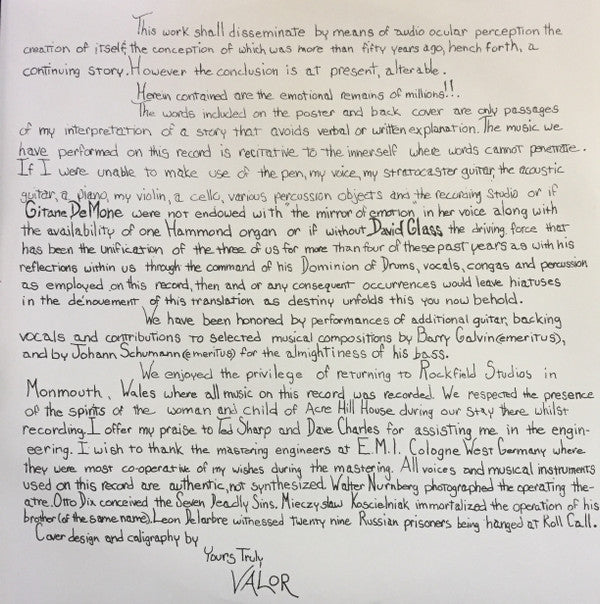 This work shall disseminate by means of audio ocular perception the
creation of itself, the conception of which was more than fifty years ago, hench forth, a
continuing story. However the conclusion is at present, alterable.
Herein contained are the emotional remains of millions!!.
The words included on the poster and back cover are only passages
of my interpretation of a story that avoids verbal or written explanation. The music we
have performed on this record is recitative to the innerself where words cannot penetrate.
If I were unable to make use of the pen, my voice, my stratocaster guitar, the acoustic
guitar, a piano, my violin, a cello, various percussion objects and the recording studio or if
Gitane DeMone were not endowed with "the mirror of emotion" in her voice along with
the availability of one Hammond organ or if without David Glass the driving force that
has been the unification of the three of us for more than four of these past years as with his
reflections within us through the command of his Dominion of Drums, vocals, congas and percussion
as employed on this record, then and or any consequent occurrences would leave hiatuses
in the dénovement of this translation as destiny unfolds this you now behold.
We have been honored by performances of additional guitar, backing
vocals and contributions to selected musical compositions by Barry Galvin (emeritus),
and by Johann Schumann (emeritus) for the almightiness of his bass.
We enjoyed the privilege of returning to Rockfield Studios in
Monmouth, Wales where all music on this record was recorded. We respected the presence
of the spirits of the woman and child of Acre Hill House during our stay there whilst
recording. I offer my praise to Ted Sharp and Dave Charles for assisting me in the engin-
eering. I wish to thank the mastering engineers at E.M.I. Cologne West Germany where
they were most co-operative of my wishes during the mastering. All voices and musical instruments
used on this record are authentic, not synthesized. Walter Nurnberg photographed the operating the-
atre. Otto Dix conceived the Seven Deadly Sins. Mieczyslaw Koscielniak immortalized the operation of his
brother (of the same name). Leon Delarbre witnessed twenty nine Russian prisoners being hanged at Roll Call.
Cover design and caligraphy by
Yours Truly
VALOR